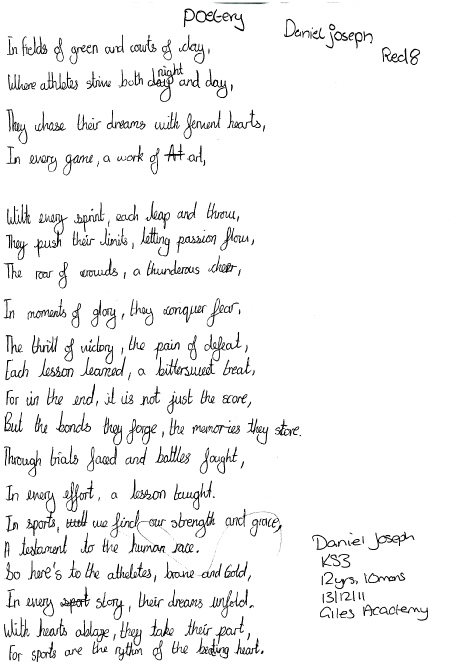 Poetery
Daniel joseph
Red 8
In fields of green and courts of clay,
Where athletes strive both day night and day,
They chase their dreams with fervent hearts,
In every game, a work of At art,
With every sprint, each leap and throw,
They push their limits, letting passion flow,
The roar of crowds, a thunderous cheer,
In moments of glory, they conquer fear,
The thrill of victory, the pain of defeat,
Each lesson learned, a bittersweet treat,
For in the end, it is not just the score,
But the bonds they forge, the memories they store.
Through trials faced and battles fought,
In every effort, a lesson taught.
In sports, we find our strength and grace,
A testament to the human race.
So here's to the athletes, brave and Gold,
In every sport story, their dreams unfold.
With hearts ablaze, they take their part,
For sports are the rythm of the beating heart.
Daniel Joseph
KS3
12yrs, 10mons
13/12/11
Giles Acactemy